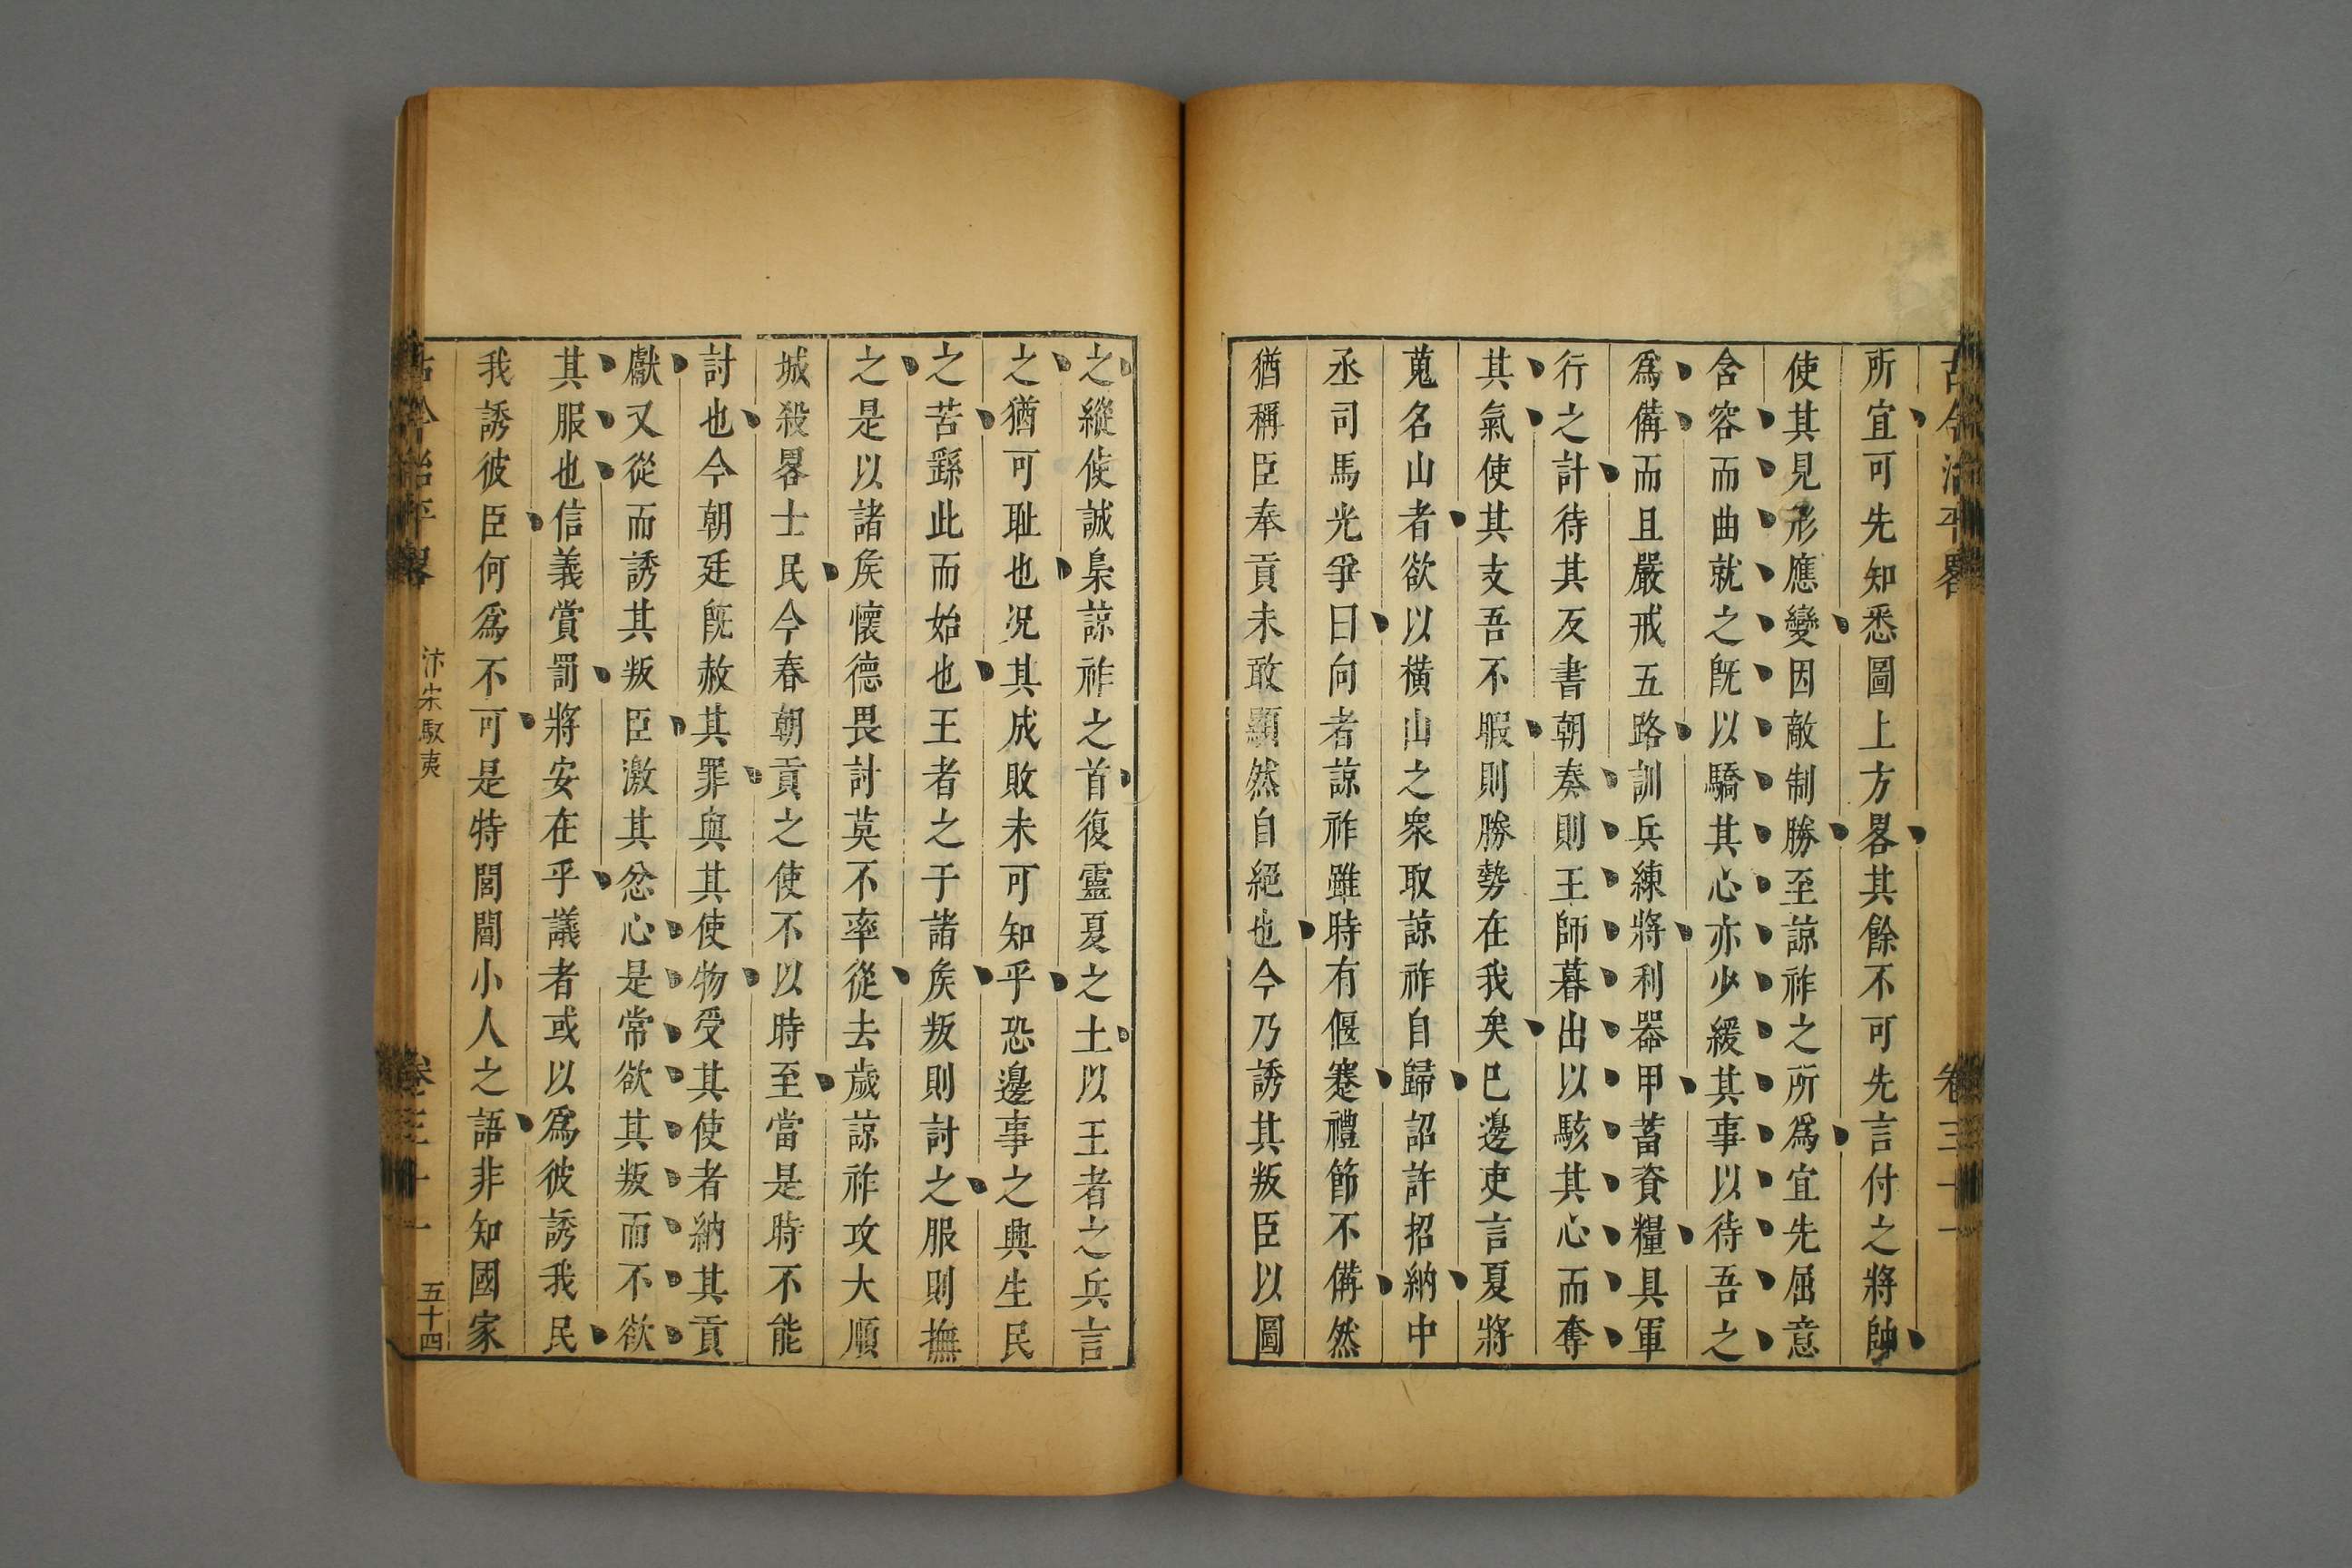 古今治平畧　卷三十一
所宜可先知悉圖上方畧其餘不可先言付之將帥
使其見形應變因敵制勝至諒祚之所爲宜先屈意
含容而曲就之旣以驕其心亦少緩其事以待吾之
爲備而且嚴戒五路訓兵練將利器甲蓄資糧具軍
行之計待其反書朝奏則王師暮出以駭其心而奪
其氣使其支吾不暇則勝勢在我矣巳邊吏言夏將
蒐名山者欲以橫山之衆取諒祚自歸詔許招納中
丞司馬光爭曰向者諒祚雖時有偃蹇禮節不備然
猶稱臣奉貢未敢顯然自絕也今乃誘其叛臣以圖
之縱使誠梟諒祚之首復靈夏之土以王者之兵言
之猶可耻也况其成敗未可知乎恐邊事之興生民
之苦繇此而始也王者之于諸矦叛則討之服則撫
之是以諸矦懷德畏討莫不率從去歲諒祚攻大順
城殺畧士民今春朝貢之使不以時至當是時不能
討也今朝廷旣赦其罪與其使物受其使者納其貢
獻又從而誘其叛臣激其忿心是常欲其叛而不欲
其服也信義賞罰將安在乎議者或以爲彼誘我民
我誘彼臣何爲不可是特閭閻小人之語非知國家
古今治平畧　汴宋馭夷　卷三十一　五十四